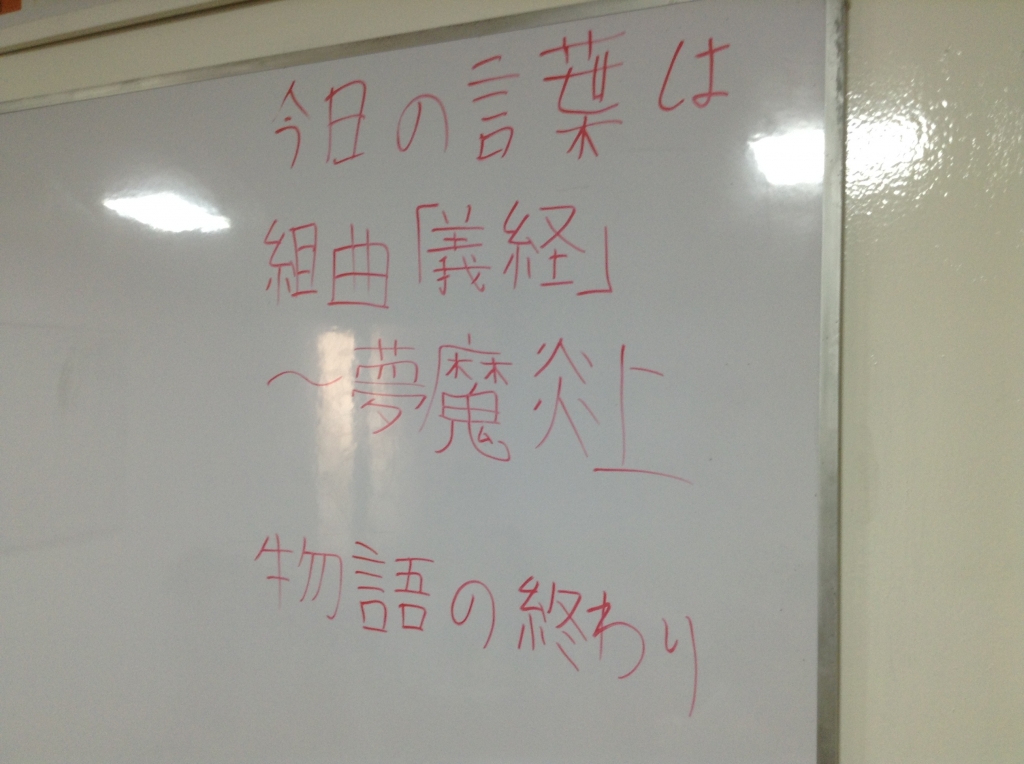 今日の言葉は
組曲「義経」
～夢魔炎上
物語の終わり